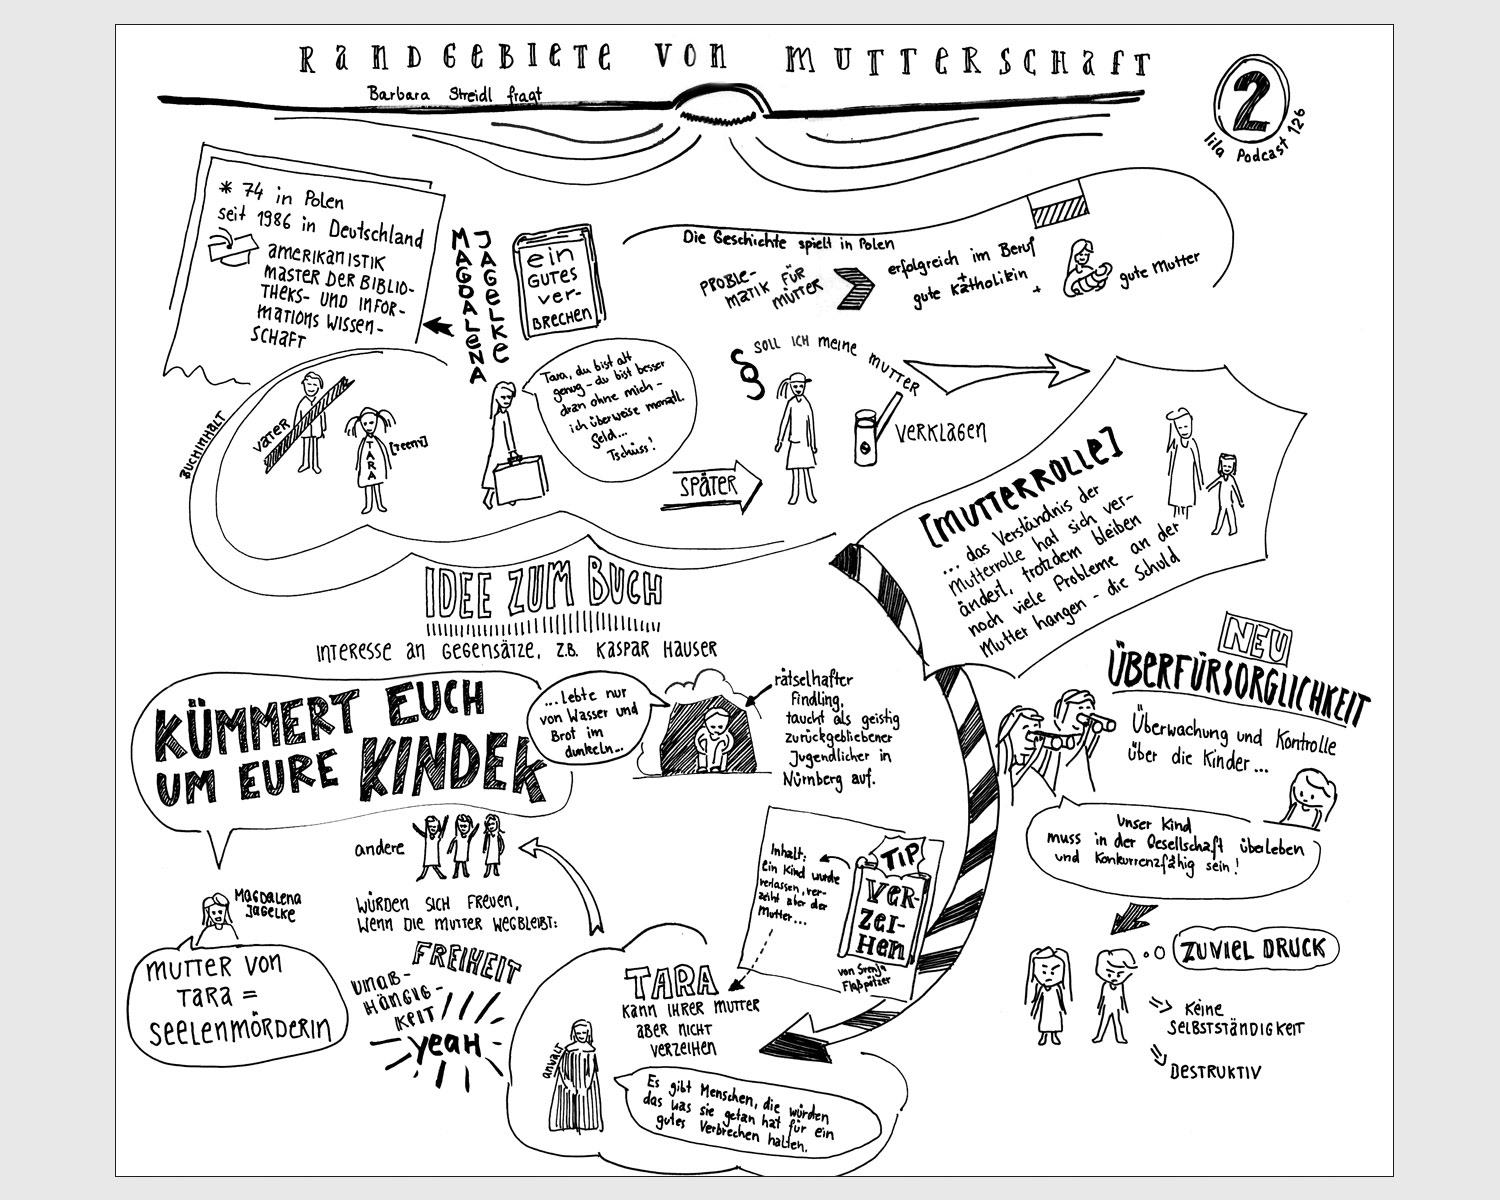 RANDGEBIETE VON MUTTERSCHAFT
Barbara Streidl fragt
2
lila Podcast 126
* 74 in Polen
seit 1986 in Deutschland
AMERIKANISTIK
MASTER DER BIBLIO-
THEKS- UND INFOR-
MATIONS WISSEN-
SCHAFT
MAGDALENA
JAGELKE
ein
GUTES
ver-
BRECHEN
Die Geschichte spielt in Polen
PROBLE-
MATIK FÜR
MÜTTER
erfolgreich im Beruf
+
gute Katholikin
+
gute Mutter
BUCHINHALT
VATER
TARA
[Teeny]
Tara, du bist alt
genug - du bist besser
dran ohne mich -
ich überweise monatl.
Geld...
Tschüss!
SPÄTER
§
SOLL ICH MEINE MUTTER
VERKLAGEN
[MUTTERROLLE]
... das Verständnis der
Mutterrolle hat sich ver-
ändert, trotzdem bleiben
noch viele Probleme an der
Mutter hangen - die Schuld
IDEE ZUM BUCH
INTERESSE AN GEGENSÄTZE, Z.B. KASPAR HAUSER
...Lebte nur
von Wasser und
Brot im
dunkeln...
rätselhafter
Findling,
taucht als geistig
zurückgebliebener
Jugendlicher in
Nürnberg auf.
KÜMMERT EUCH
UM EURE KINDER
MAGDALENA
JAGELKE
MUTTER VON
TARA =
SEELENMÖRDERIN
andere
WÜRDEN SICH FREUEN,
WENN DIE MUTTER WEGBLEIBT:
FREIHEIT
UNAB-
HÄNGIG-
KEIT
yeaH
Inhalt:
Ein Kind wurde
verlassen, ver-
zeiht aber der
Mutter...
TIP
VER-
ZEI-
HEN
von Svenja
Flaßpöhler
TARA
KANN IHRER MUTTER
ABER NICHT
VERZEIHEN
anwalt
Es gibt Menschen, die würden
das was sie getan hat für ein
gutes Verbrechen halten.
NEU
ÜBERFÜRSORGLICHKEIT
Überwachung und Kontrolle
über die Kinder...
Unser Kind
muss in der Gesellschaft überleben
und Konkurrenzfähig sein!
ZUVIEL DRUCK
KEINE
SELBSTSTÄNDIGKEIT
DESTRUKTIV